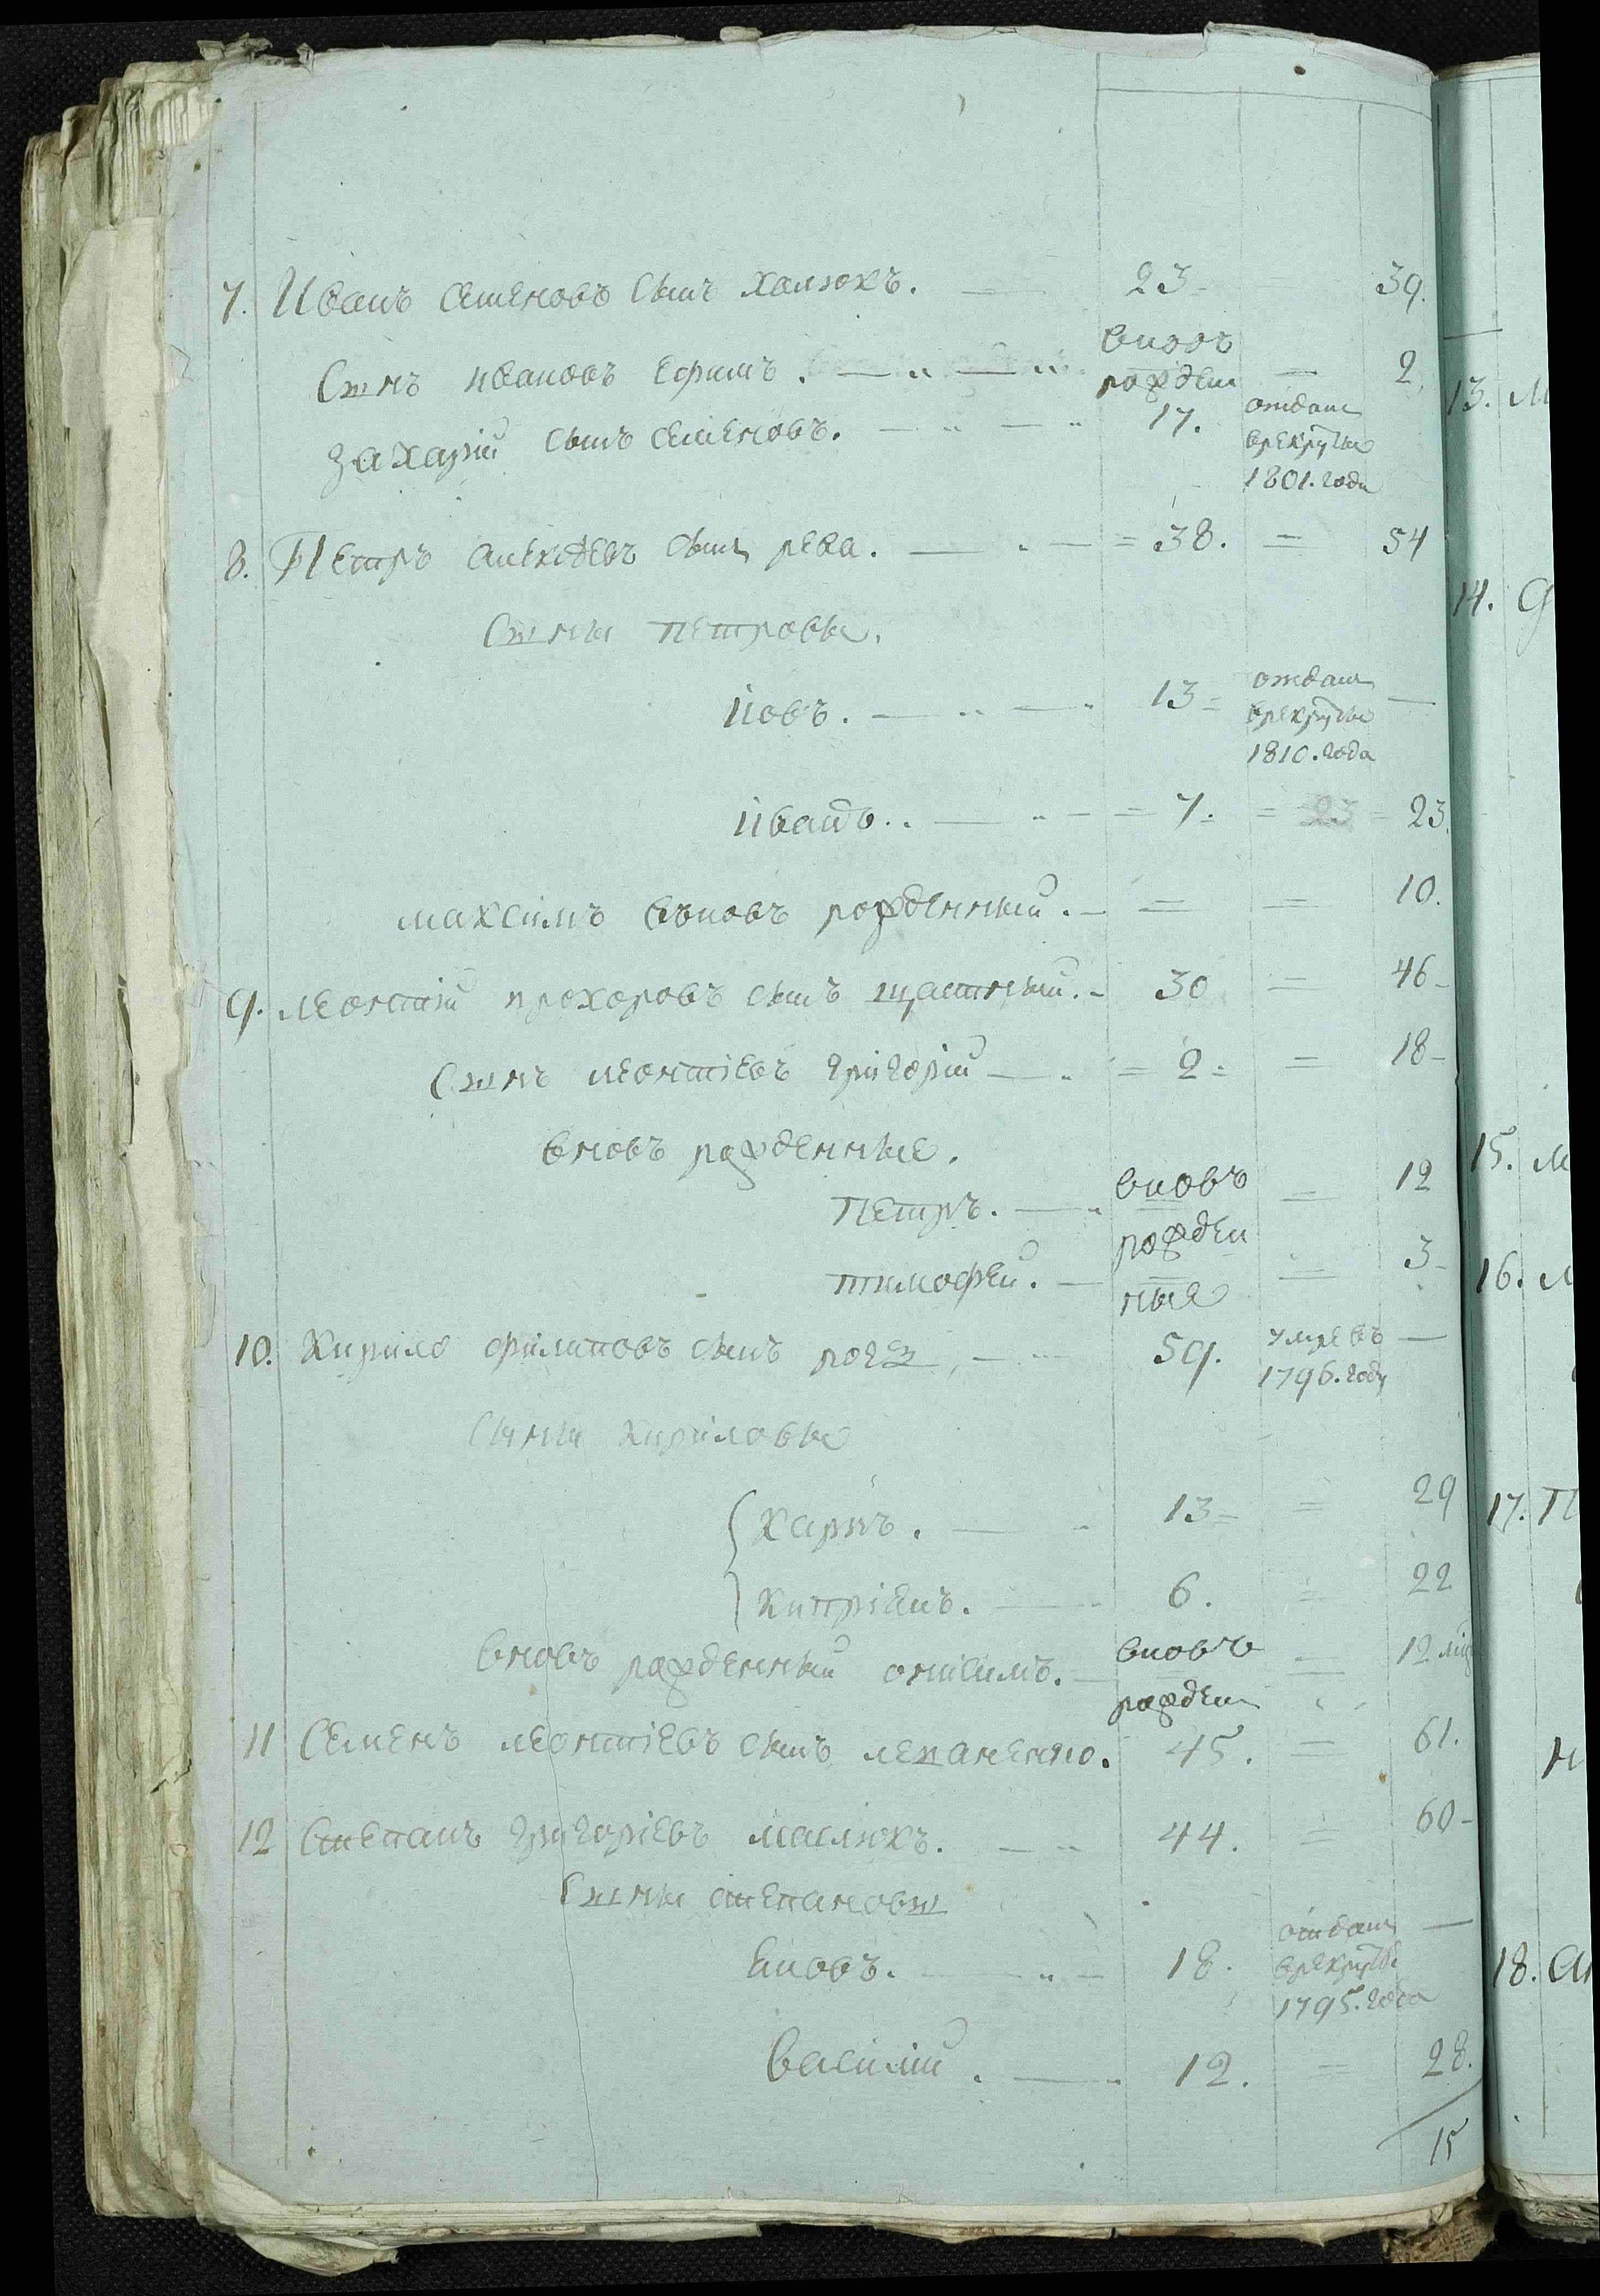 7. Иванъ Семеновъ сынъ Халюкъ. — 23 - 39.
Сынъ Ивановъ Ефимъ. — вновь рожден = 2
Захарій сынъ Семеновъ. — 17. отдан врекруты 1801. года
8. Петръ Алексѣевъ сынъ Рева. — = 38. = 54
Сыны Петровы.
Іовъ. — 13 = отдан врекруты 1810. года —
Иванъ. — = 7. = 23 = 23.
Максимъ вновь рожденный. - = = 10.
9. Леонтій Прохоровъ сынъ Щастный. - 30 = 46 -
Сынъ Леонтіевъ Григорій — = 2 = = 18 -
Вновь рожденные.
Петръ. — вновь = 12
рожден
Тимофей. — ные = 3 -
10. Кирило Филиповъ сынъ — 59. умре въ 1796. году —
Сыны Кириловы
Харит. — 13 = = 29
Кипріянъ. — 6. = 22
Вновь рожденный Онисимъ. — вновь рожден = 12
11 Семенъ Леонтіевъ сынъ 45. = 61.
12 Степанъ Григоріевъ Маслюкъ. — 44. = 60 -
Сыны Степановы
— 18. отдан врекруты 1795. года —
Василій. — 12. = 28.
15
13. М
14.
15. М
16.
17. П
18.